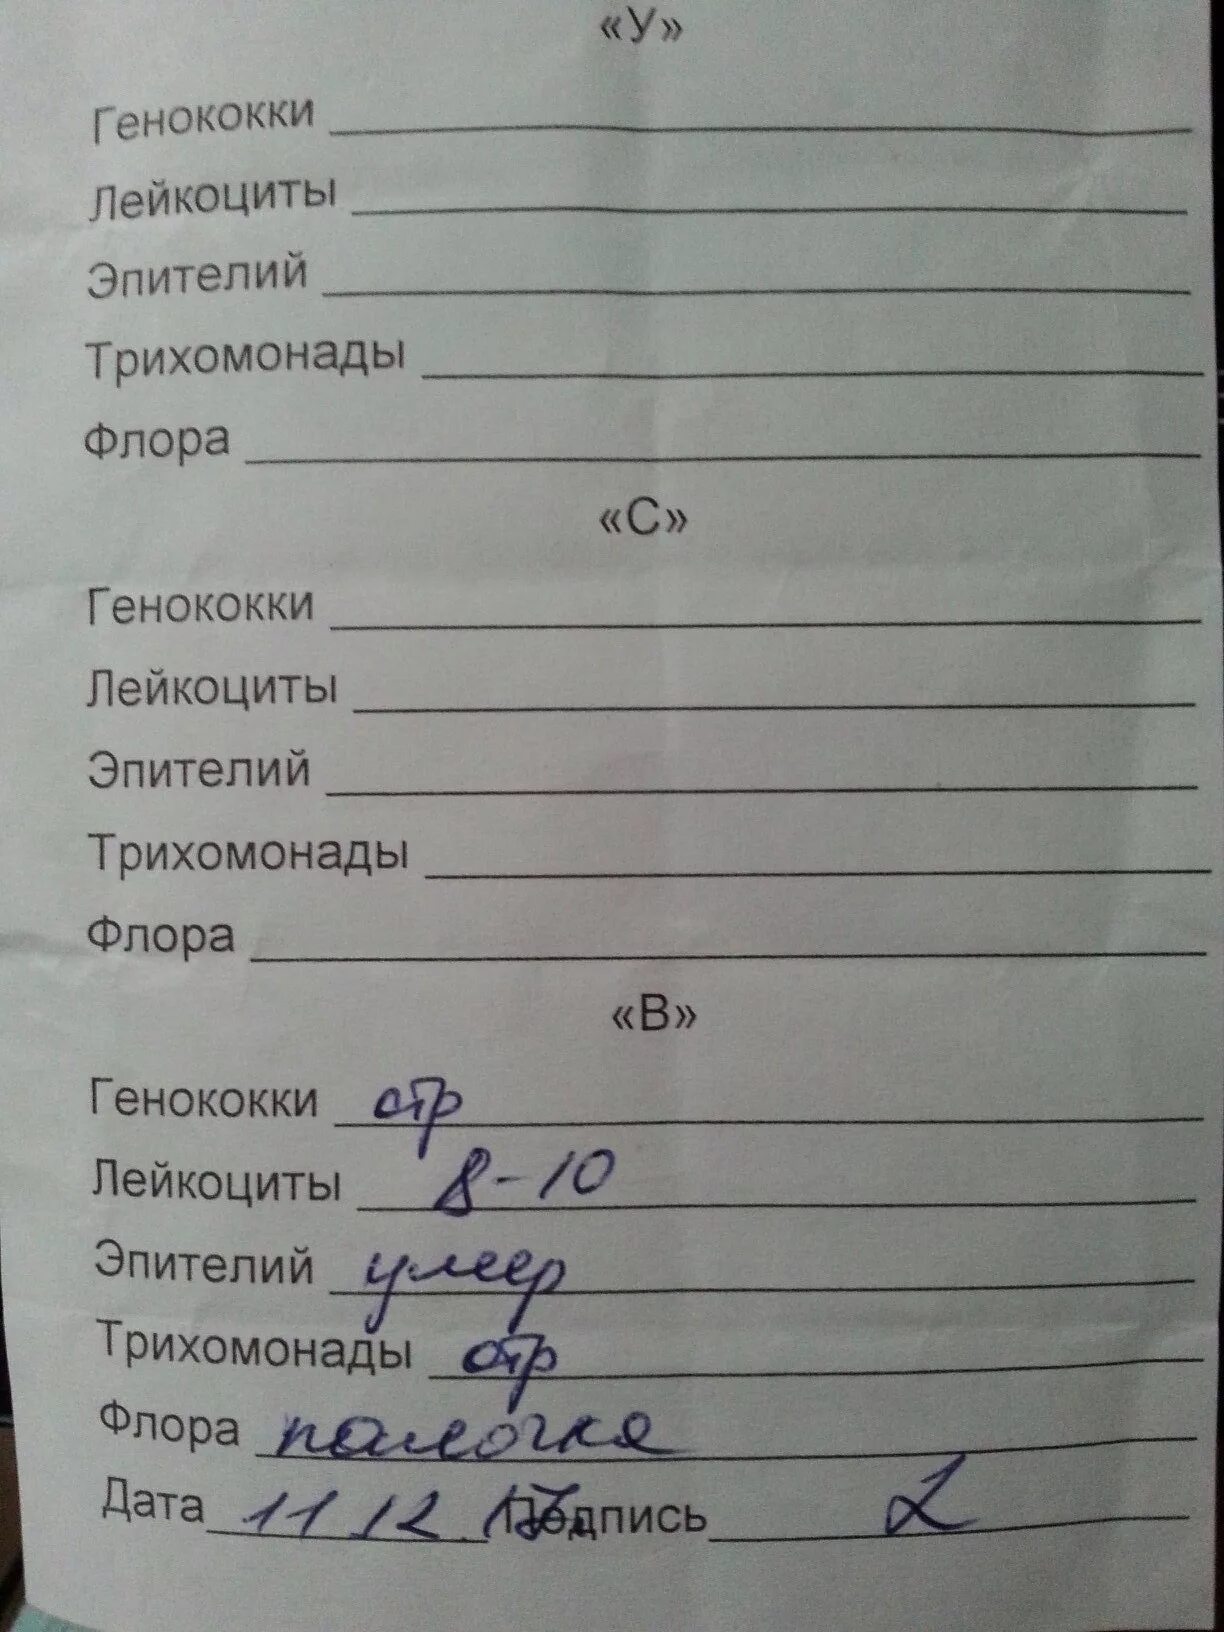 «У»
Генококки
Лейкоциты
Эпителий
Трихомонады
Флора
«С»
Генококки
Лейкоциты
Эпителий
Трихомонады
Флора
«В»
Генококки отр
Лейкоциты 8-10
Эпителий умер
Трихомонады отр
Флора палочка
Дата 11 12 17 Подпись